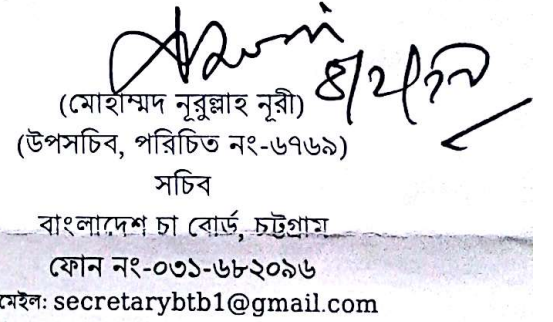 (মোহাম্মদ নূরুল্লাহ নূরী)
(উপসচিব, পরিচিত নং-৬৭৬৯)
সচিব
বাংলাদেশ চা বোর্ড, চট্টগ্রাম
ফোন নং-০৩১-৬৮২০৯৬
মেইল: secretarybtb1@gmail.com